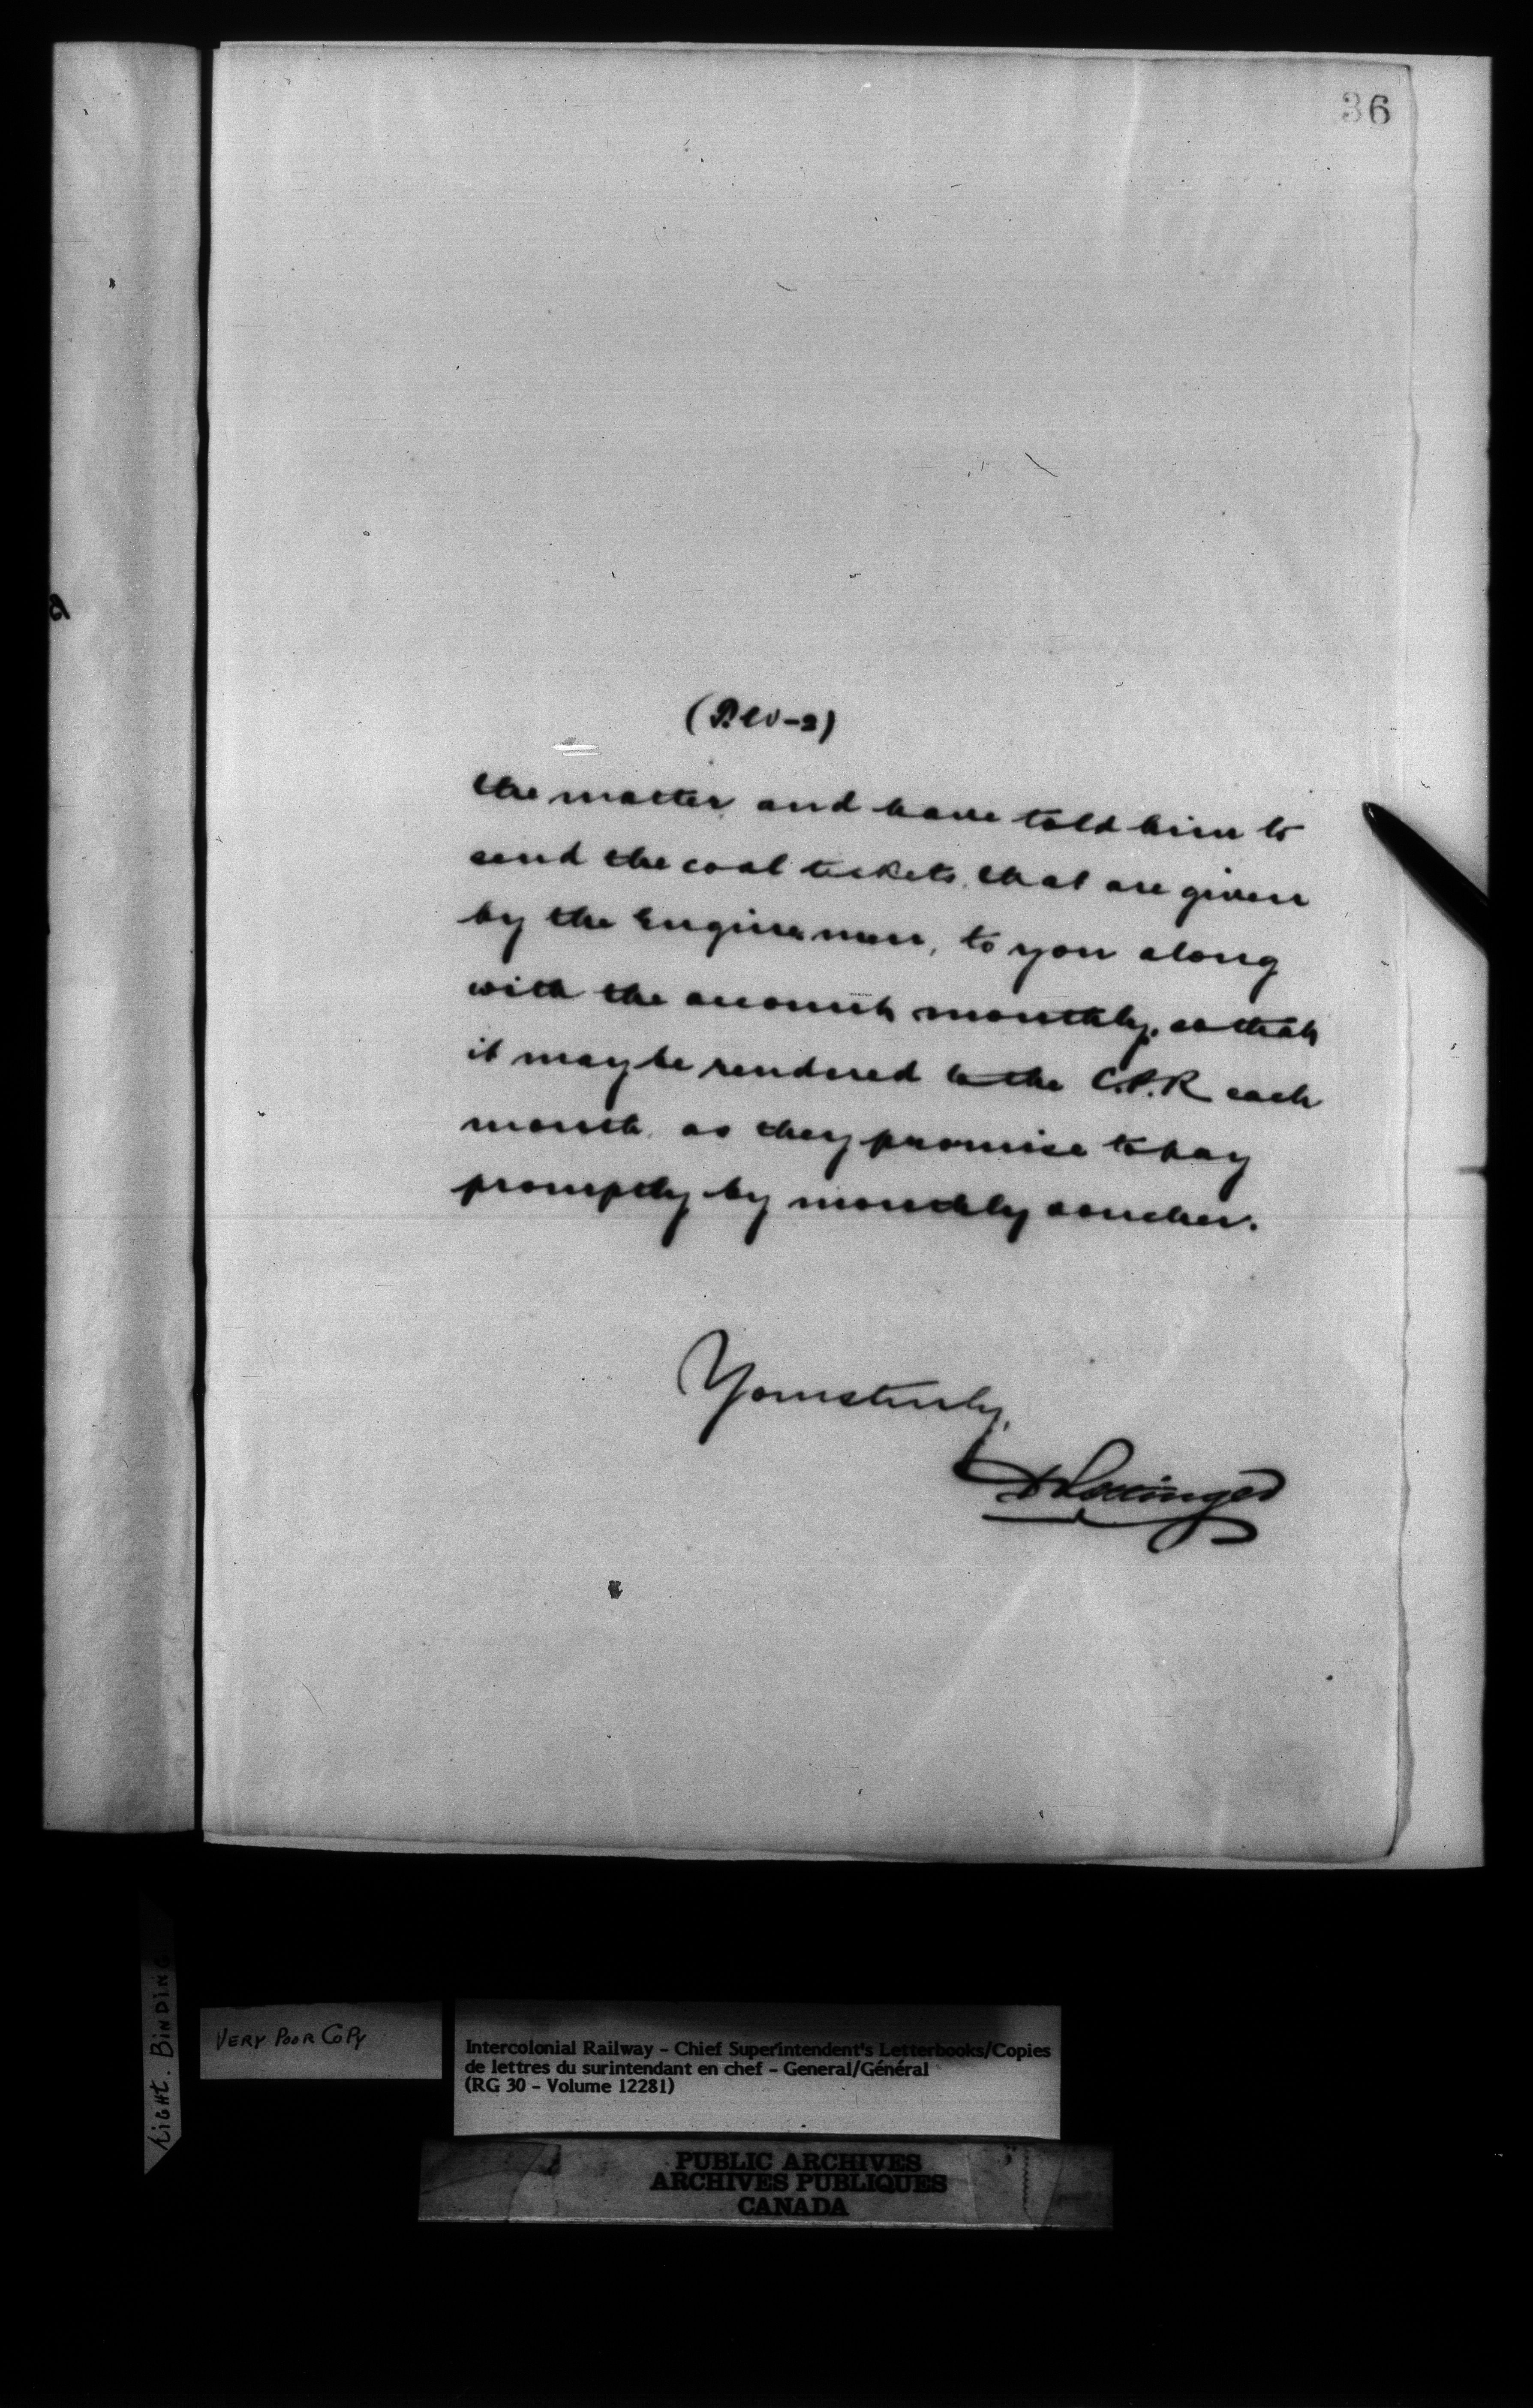 36
the matter and have told him to
send the coal tickets that are given
by the Enginemen, to you along
with the accounts monthly, so that
it may be rendered to the C.P.R each
month as they promise to pay
promptly by monthly voucher.
Yours truly,
D Pottinger
LIGHT. BINDING
VERY POOR COPY
Intercolonial Railway - Chief Superintendent's Letterbooks/Copies
de lettres du surintendant en chef - General/Général
(RG 30 - Volume 12281)
PUBLIC ARCHIVES
ARCHIVES PUBLIQUES
CANADA